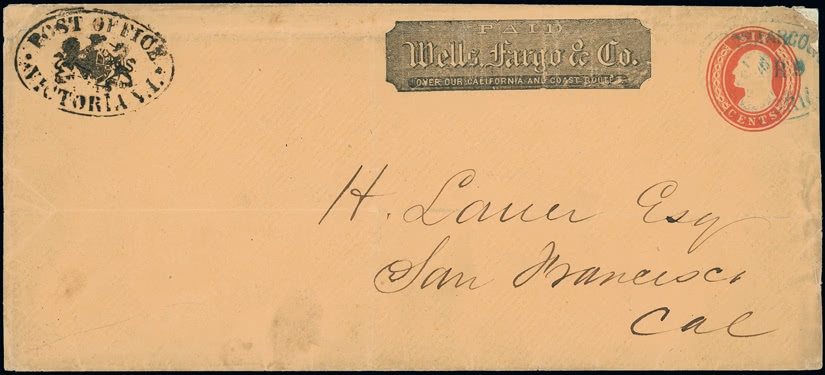 POST OFFICE
VICTORIA V.I.
PAID
Wells, Fargo & Co.
OVER OUR CALIFORNIA AND COAST ROUTES
CENTS
H. Lauer Esq
San Francisco
Cal